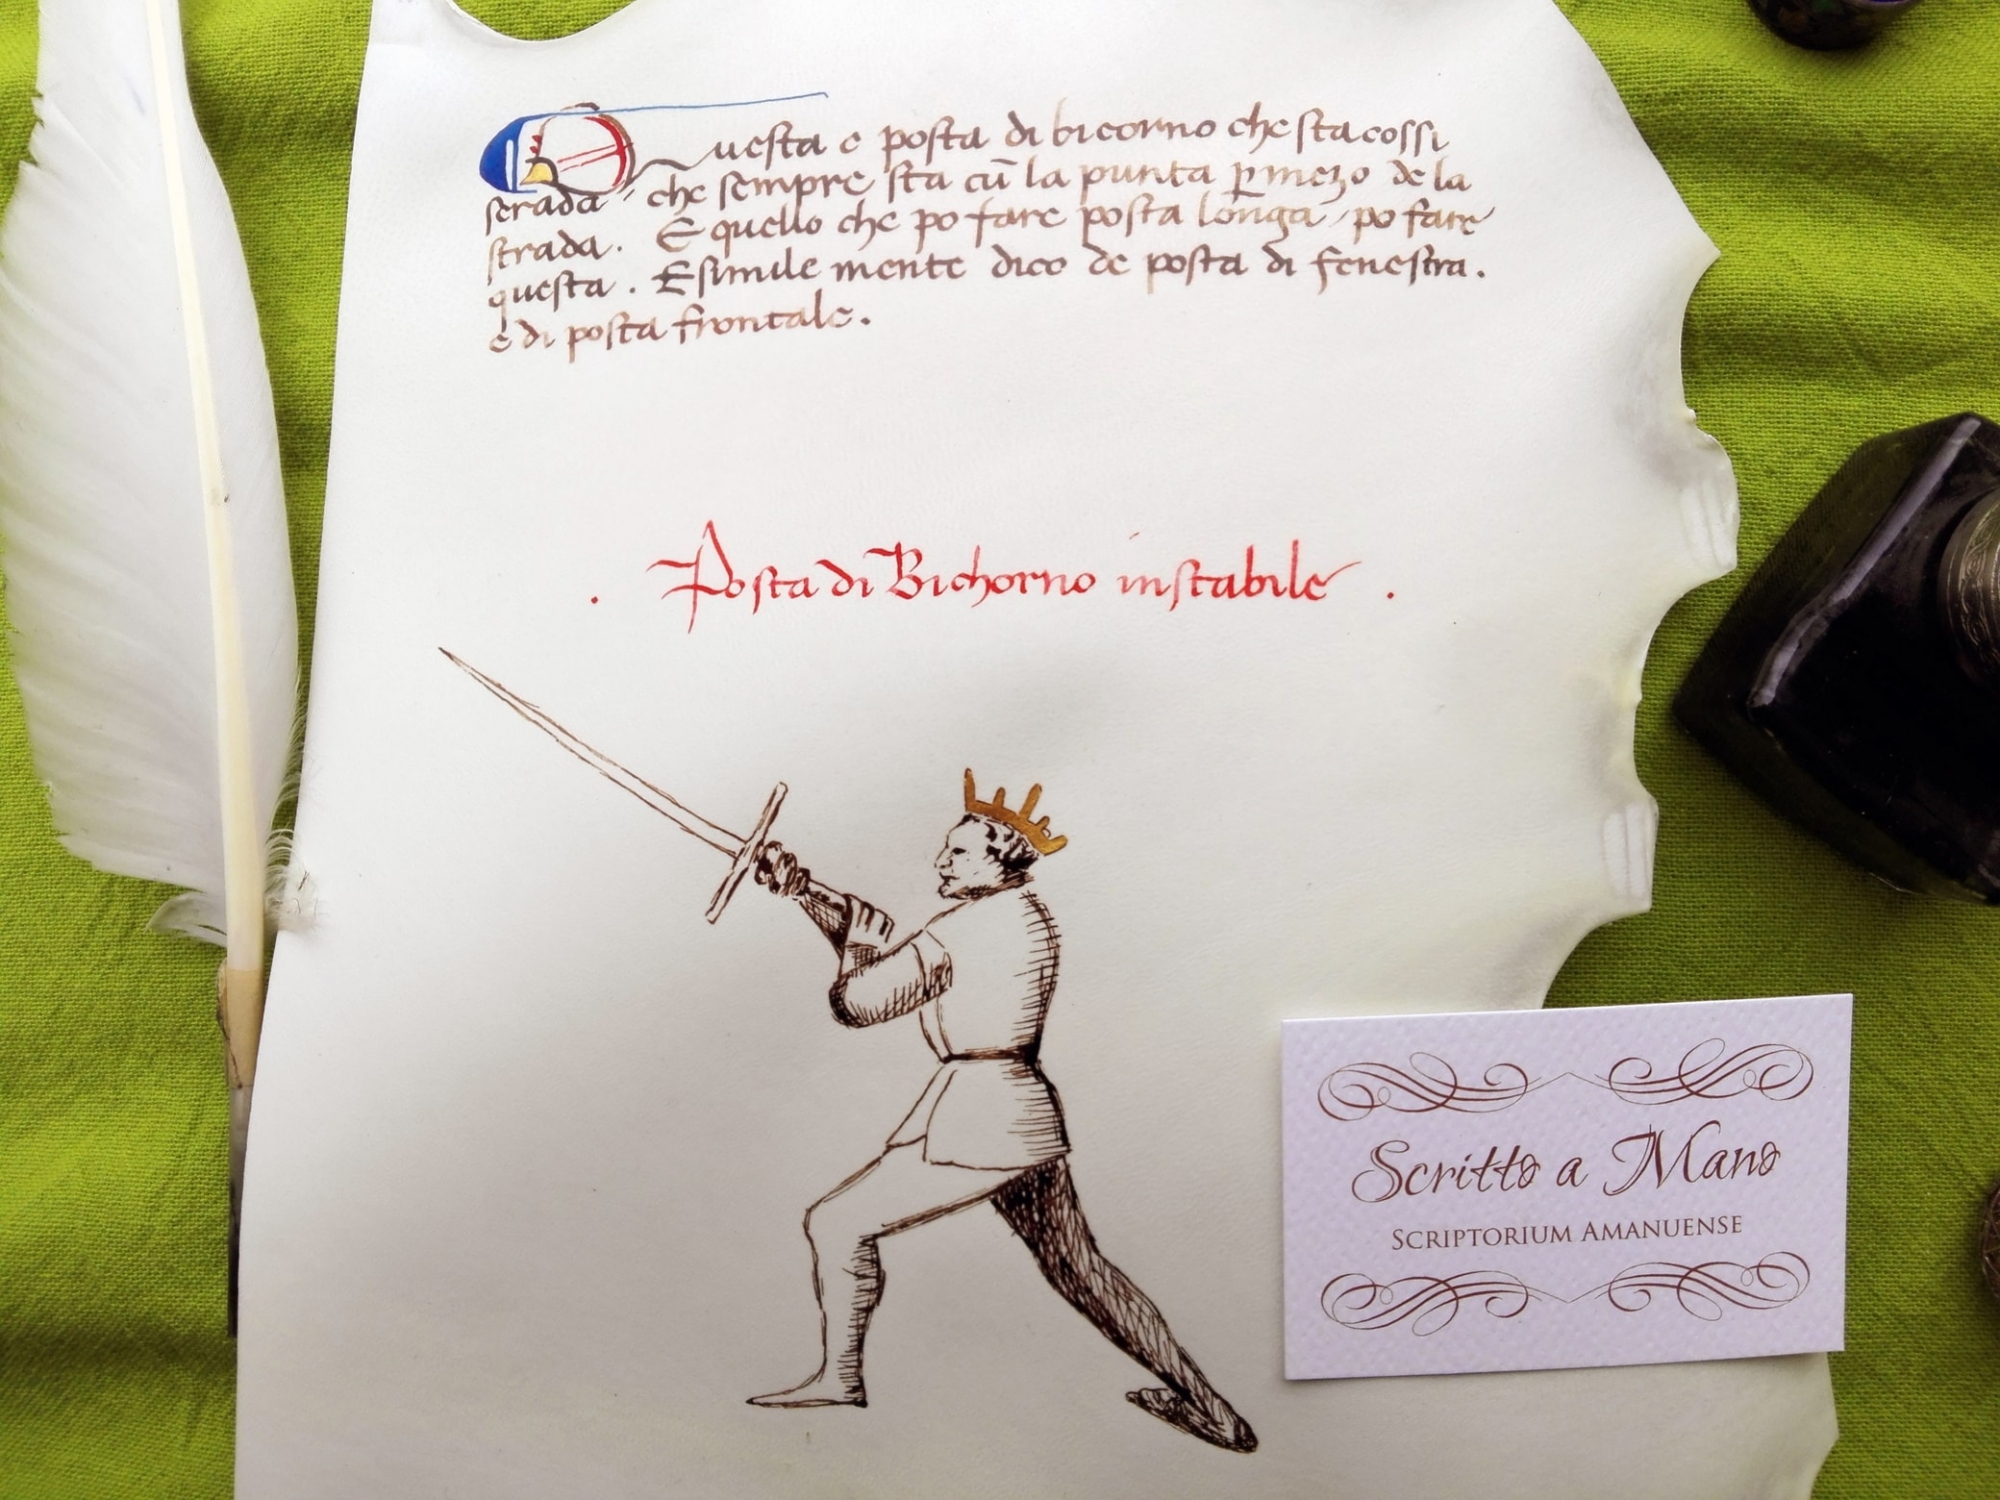 Questa e posta di bicorno che sta cossi
serada che sempre sta cū la punta p mezo de la
strada. E quello che po fare posta longa po fare
questa. E simile mente dico de posta di fenestra.
e di posta frontale.
. Posta di Bichorno instabile .
Scritto a Mano
SCRIPTORIUM AMANUENSE